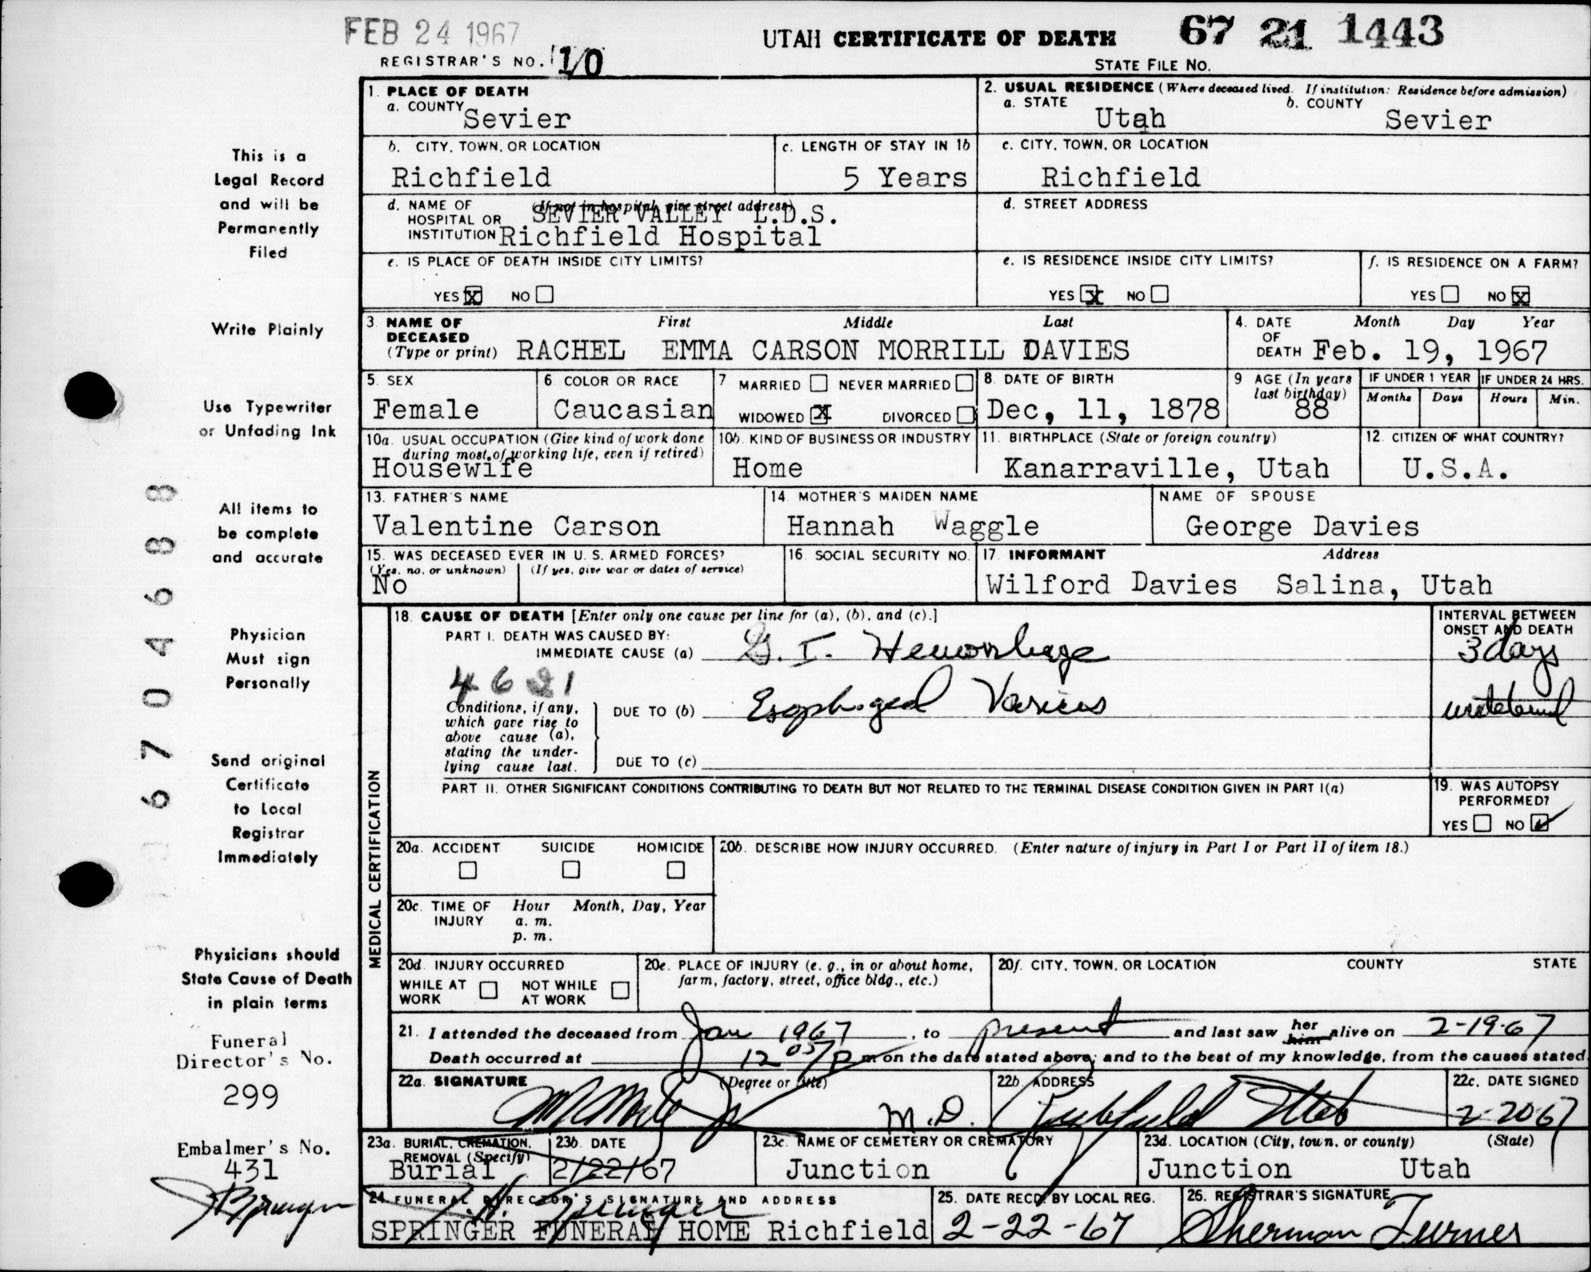 FEB 24 1967
UTAH CERTIFICATE OF DEATH 67 21 1443
REGISTRAR'S NO. 10
STATE FILE NO.
1. PLACE OF DEATH
a. COUNTY Sevier
2. USUAL RESIDENCE (Where deceased lived. If institution: Residence before admission)
a. STATE Utah b. COUNTY Sevier
b. CITY, TOWN, OR LOCATION Richfield
c. LENGTH OF STAY IN 1b 5 Years
c. CITY, TOWN, OR LOCATION Richfield
d. NAME OF HOSPITAL OR INSTITUTION (If not in hospital, give street address)
SEVIER VALLEY L.D.S.
Richfield Hospital
d. STREET ADDRESS
e. IS PLACE OF DEATH INSIDE CITY LIMITS?
YES X NO
e. IS RESIDENCE INSIDE CITY LIMITS?
YES X NO
f. IS RESIDENCE ON A FARM?
YES NO X
3. NAME OF DECEASED (Type or print) First Middle Last
RACHEL EMMA CARSON MORRILL DAVIES
4. DATE OF DEATH Month Day Year
Feb. 19, 1967
5. SEX Female
6. COLOR OR RACE Caucasian
7 MARRIED NEVER MARRIED
WIDOWED X DIVORCED
8. DATE OF BIRTH Dec, 11, 1878
9 AGE (In years last birthday) 88
IF UNDER 1 YEAR Months Days
IF UNDER 24 HRS. Hours Min.
10a. USUAL OCCUPATION (Give kind of work done during most of working life, even if retired)
Housewife
10b. KIND OF BUSINESS OR INDUSTRY
Home
11. BIRTHPLACE (State or foreign country)
Kanarraville, Utah
12. CITIZEN OF WHAT COUNTRY?
U.S.A.
13. FATHER'S NAME
Valentine Carson
14. MOTHER'S MAIDEN NAME
Hannah Waggle
NAME OF SPOUSE
George Davies
15. WAS DECEASED EVER IN U. S. ARMED FORCES?
(Yes, no, or unknown) (If yes, give war or dates of service)
No
16. SOCIAL SECURITY NO.
17. INFORMANT Address
Wilford Davies Salina, Utah
18. CAUSE OF DEATH [Enter only one cause per line for (a), (b), and (c).]
PART I. DEATH WAS CAUSED BY:
IMMEDIATE CAUSE (a) G. I. Hemorrhage
4621
Conditions, if any, which gave rise to above cause (a), stating the underlying cause last.
DUE TO (b) Esophageal Varices
DUE TO (c)
INTERVAL BETWEEN ONSET AND DEATH
3 days
PART II. OTHER SIGNIFICANT CONDITIONS CONTRIBUTING TO DEATH BUT NOT RELATED TO THE TERMINAL DISEASE CONDITION GIVEN IN PART I(a)
19. WAS AUTOPSY PERFORMED?
YES NO
MEDICAL CERTIFICATION
20a. ACCIDENT SUICIDE HOMICIDE
20b. DESCRIBE HOW INJURY OCCURRED. (Enter nature of injury in Part I or Part II of item 18.)
20c. TIME OF INJURY Hour Month, Day, Year
a. m.
p. m.
20d. INJURY OCCURRED
WHILE AT WORK NOT WHILE AT WORK
20e. PLACE OF INJURY (e. g., in or about home, farm, factory, street, office bldg., etc.)
20f. CITY, TOWN, OR LOCATION COUNTY STATE
21. I attended the deceased from Jan 1967, to present and last saw her him alive on 2-19-67
Death occurred at 12 05 P m on the date stated above; and to the best of my knowledge, from the causes stated.
22a. SIGNATURE (Degree or title) M.D.
22b. ADDRESS Richfield Utah
22c. DATE SIGNED 2-20-67
23a. BURIAL, CREMATION, REMOVAL (Specify) Burial
23b. DATE 2/22/67
23c. NAME OF CEMETERY OR CREMATORY Junction
23d. LOCATION (City, town, or county) (State)
Junction Utah
24. FUNERAL DIRECTOR'S SIGNATURE AND ADDRESS
SPRINGER FUNERAL HOME Richfield
25. DATE RECD BY LOCAL REG.
2-22-67
26. REGISTRAR'S SIGNATURE
Sherman Turner
This is a
Legal Record
and will be
Permanently
Filed
Write Plainly
Use Typewriter
or Unfading Ink
All items to
be complete
and accurate
Physician
Must sign
Personally
Send original
Certificate
to Local
Registrar
Immediately
Physicians should
State Cause of Death
in plain terms
Funeral
Director's No.
299
Embalmer's No.
431
6704688